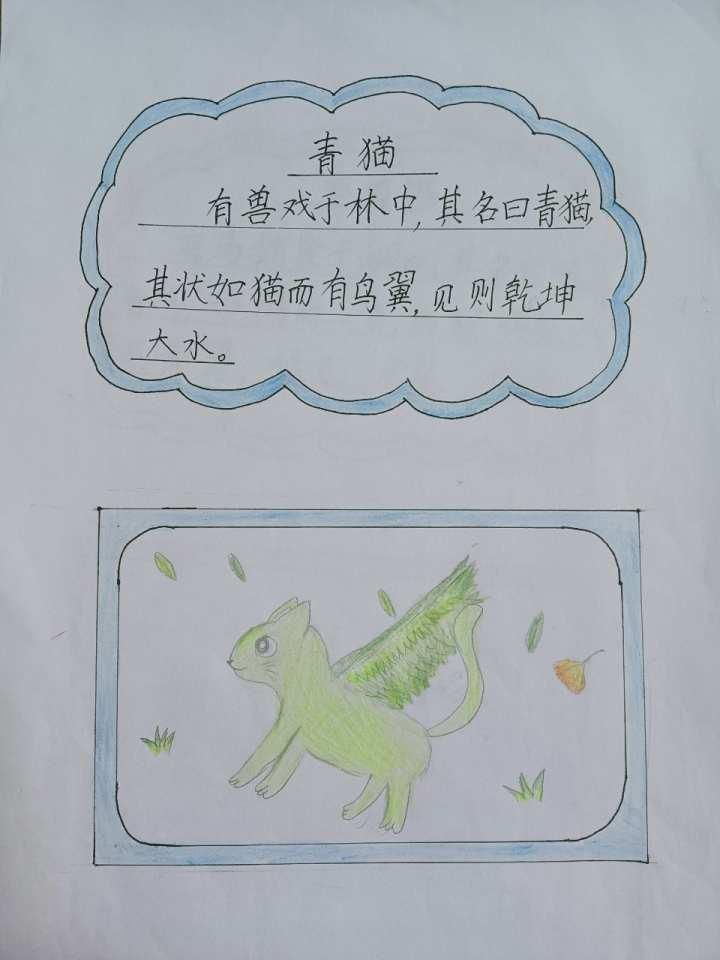 青猫
有兽戏于林中,其名曰青猫,
其状如猫而有鸟翼,见则乾坤
大水。